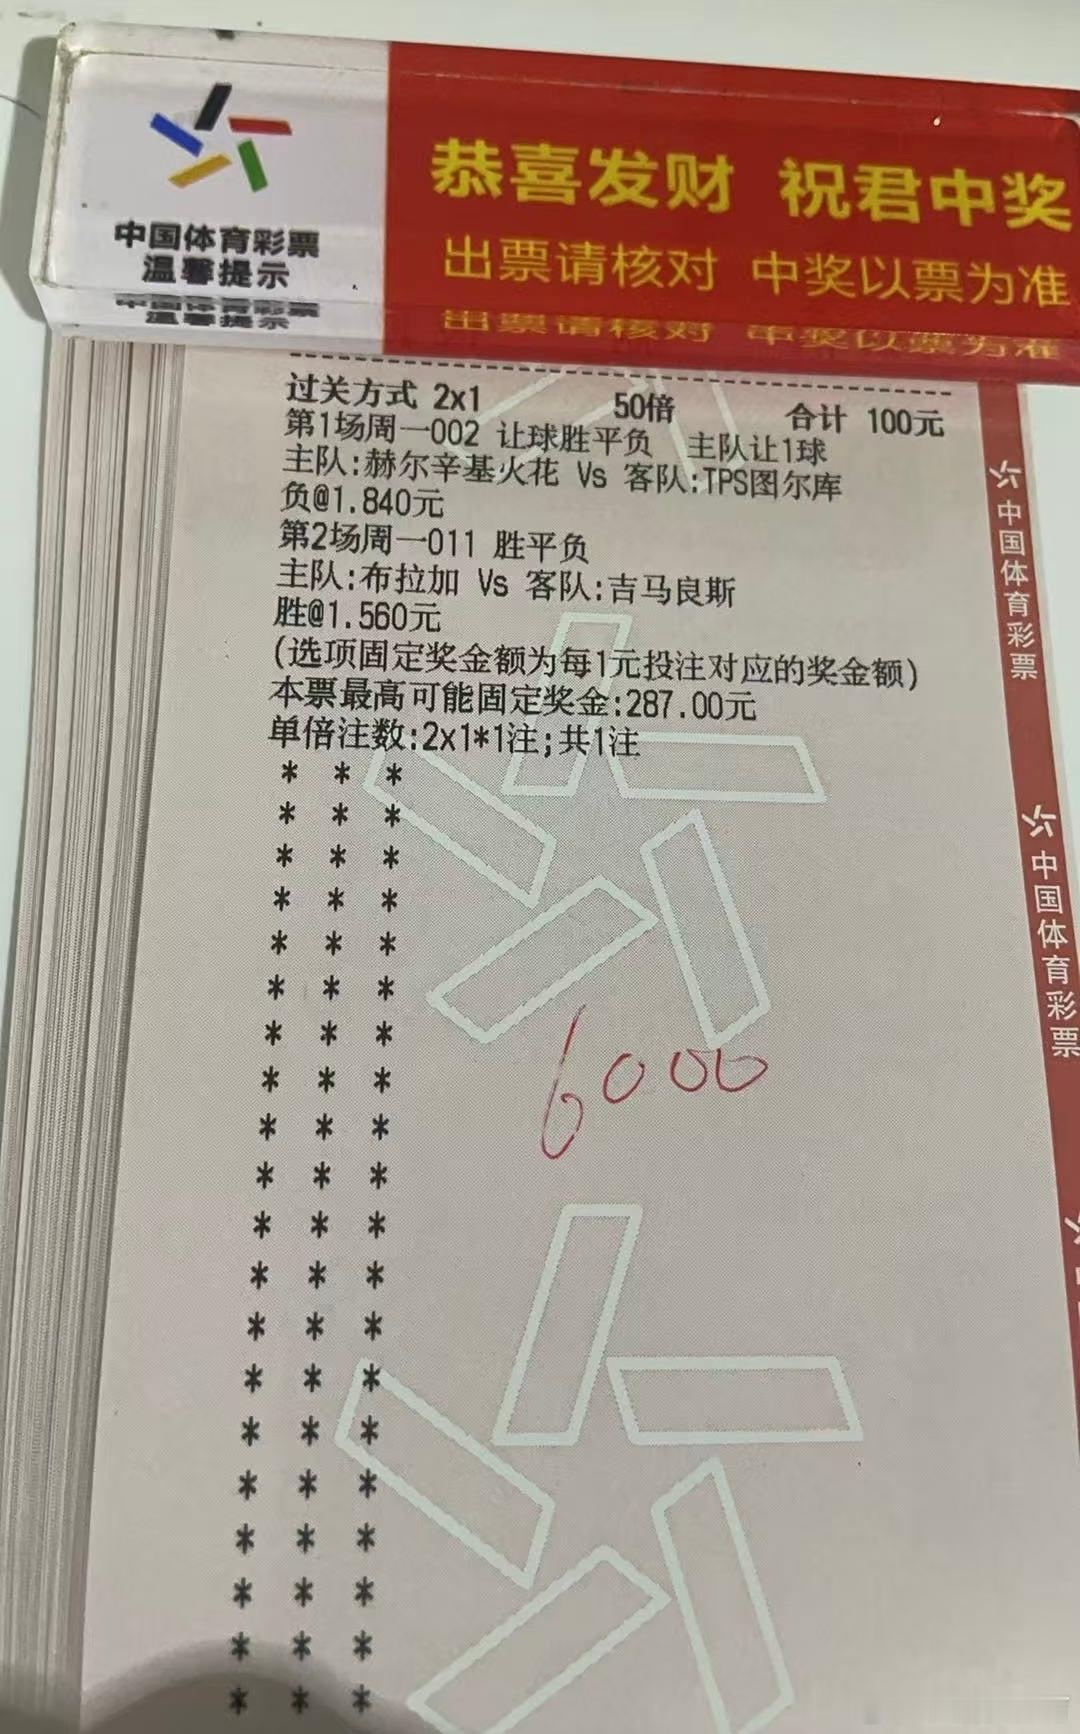 恭喜发财 祝君中奖
中国体育彩票
温馨提示
出票请核对 中奖以票为准
中国体育彩票
温馨提示
出票请核对 中奖以票为准
过关方式 2x1 50倍 合计 100元
第1场周一002 让球胜平负 主队让1球
主队:赫尔辛基火花 Vs 客队:TPS图尔库
负@1.840元
第2场周一011 胜平负
主队:布拉加 Vs 客队:吉马良斯
胜@1.560元
(选项固定奖金额为每1元投注对应的奖金额)
本票最高可能固定奖金:287.00元
单倍注数:2x1*1注;共1注
* * *
* * *
* * *
* * *
* * *
* * *
* * *
* * *
* * *
* * *
* * *
* * *
* * *
* * *
* * *
* * *
* * *
* * *
* * *
* * *
6000
中国体育彩票
中国体育彩票